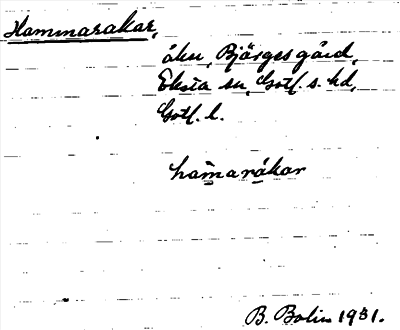 Hammarakar,
åker, Bjärges gård,
Eksta sn, Gotl. s. hd,
Gotl. l.
ham̄arákar
B. Bolin 1931.